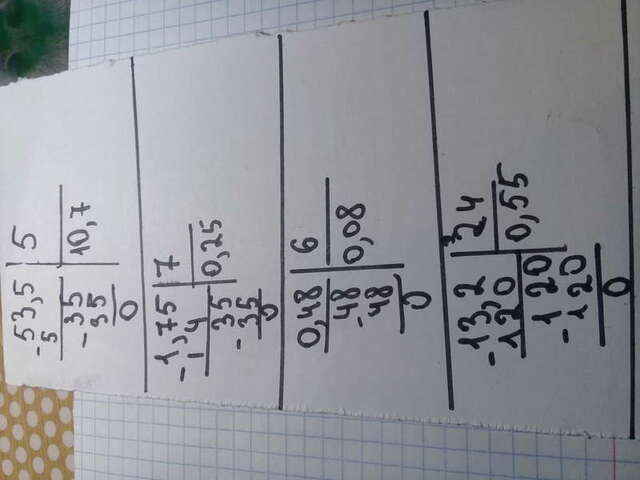 -53,5 | 5
5
-35 | 10,7
35
0
-1,75 | 7
1 4
-35 | 0,25
35
0
0,48 | 6
-48 | 0,08
48
0
-13,2 | 24
120
-120 | 0,55
120
0